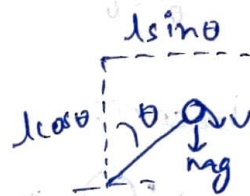 lsinθ
lcosθ θ v
mg